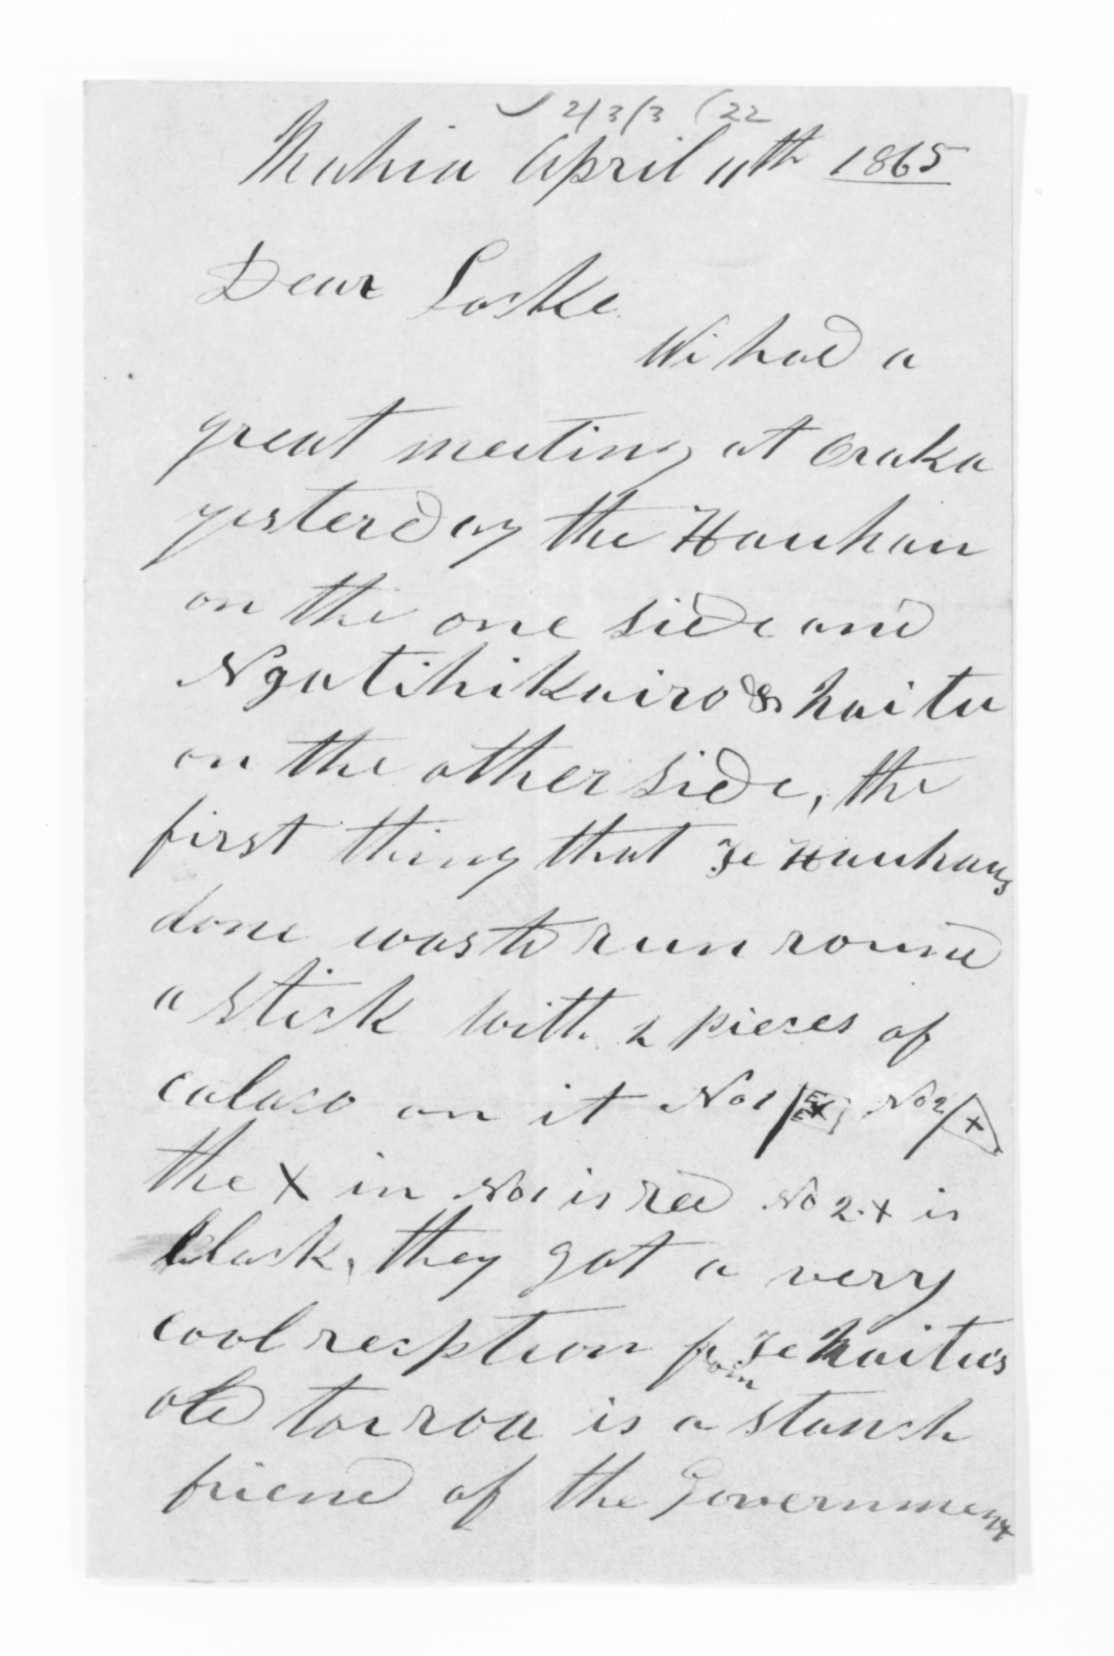 2/3/3 (22
Mahia April 11th 1865
Dear Locke
We had a
great meeting at Oraka
yesterday the Hauhau
on the one side and
Ngatihikairo & kaitu
on the other side, the
first thing that Te Hauhaus
done was to run round
a stick with 2 pieces of
calaco on it No 1 X No 2 X
the X in No 1 is red No 2. X is
black, they got a very
cool reception from Te kaitus
old torroa is a stanch
friend of the Government